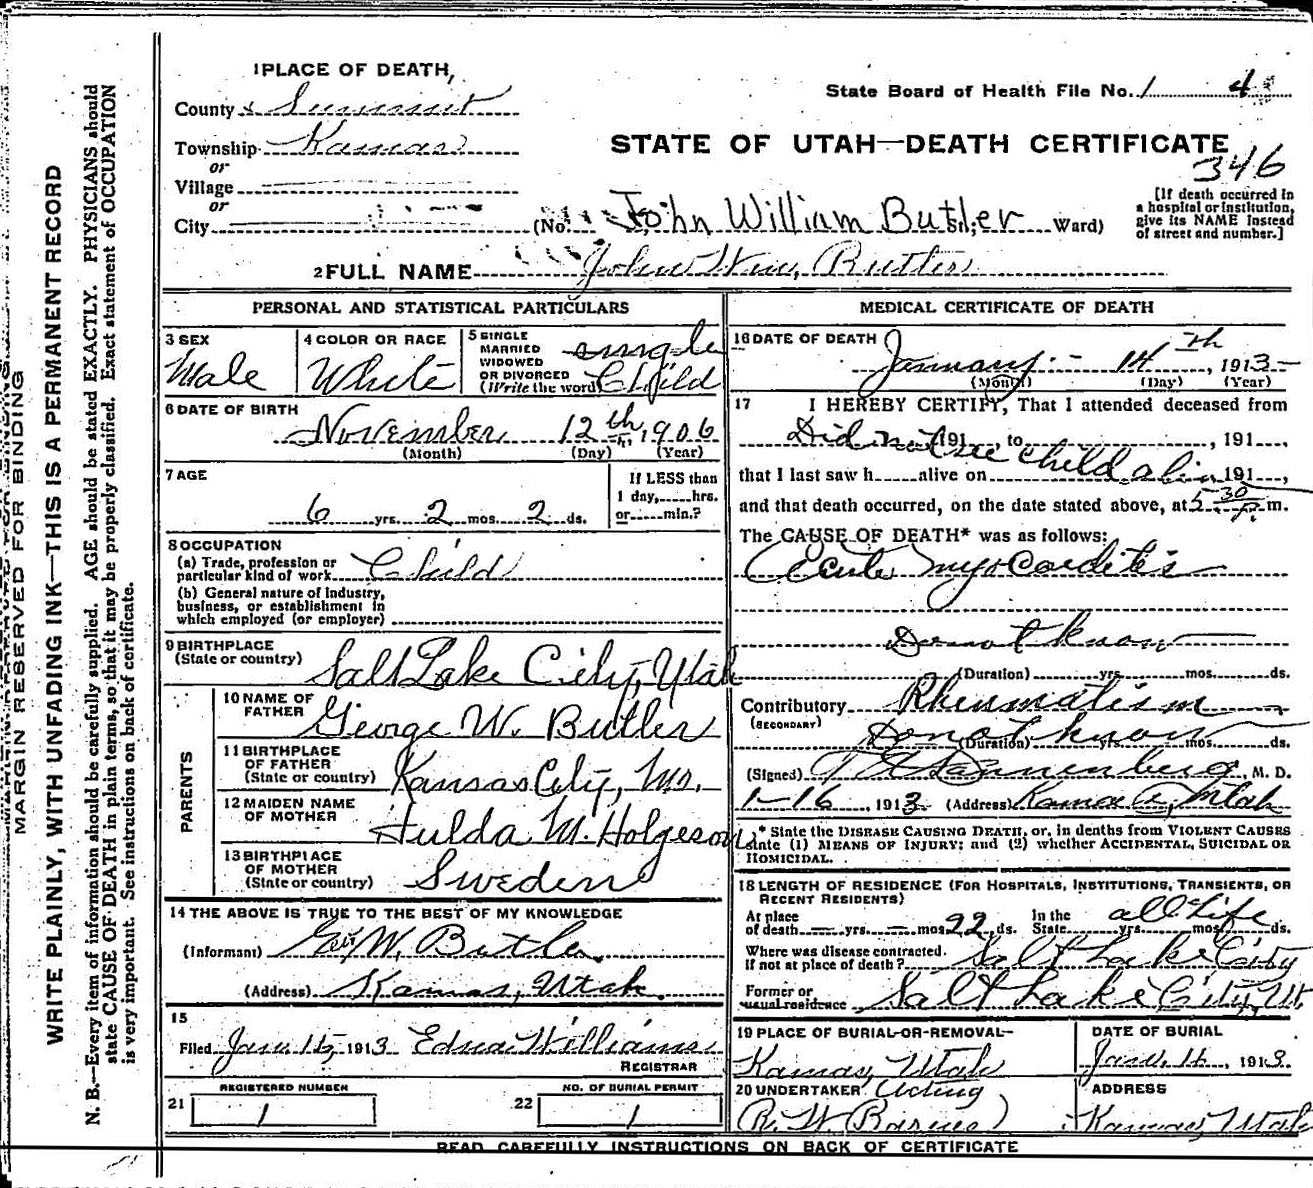 1 PLACE OF DEATH,
County Summit
Township Kamas
or
Village
or
City
State Board of Health File No. 1 4
STATE OF UTAH—DEATH CERTIFICATE
346
[If death occurred in
a hospital or institution,
give its NAME instead
of street and number.]
(No. St.; Ward)
John William Butler
2 FULL NAME John Wm, Butler
PERSONAL AND STATISTICAL PARTICULARS
3 SEX
Male
4 COLOR OR RACE
White
5 SINGLE
MARRIED
WIDOWED
OR DIVORCED
(Write the word)
single
Child
6 DATE OF BIRTH
November 12th, 1906
(Month) (Day) (Year)
7 AGE
6 yrs. 2 mos. 2 ds.
If LESS than
1 day, hrs.
or min.?
8 OCCUPATION
(a) Trade, profession or
particular kind of work Child
(b) General nature of Industry,
business, or establishment in
which employed (or employer)
9 BIRTHPLACE
(State or country)
Salt Lake City, Utah
PARENTS
10 NAME OF
FATHER
George W. Butler
11 BIRTHPLACE
OF FATHER
(State or country)
Kansas City, Mo.
12 MAIDEN NAME
OF MOTHER
Hulda M. Holgeson
13 BIRTHPLACE
OF MOTHER
(State or country)
Sweden
14 THE ABOVE IS TRUE TO THE BEST OF MY KNOWLEDGE
(Informant) Geo. W. Butler
(Address) Kamas, Utah.
15
Filed Jan. 15, 1913 Edna Williams
REGISTRAR
REGISTERED NUMBER
21 1
NO. OF BURIAL PERMIT
22 1
MEDICAL CERTIFICATE OF DEATH
16 DATE OF DEATH
January 14th, 1913
(Month) (Day) (Year)
17 I HEREBY CERTIFY, That I attended deceased from
191 , to , 191 ,
Did not see child alive
that I last saw h alive on 191 ,
and that death occurred, on the date stated above, at 5 30 P. m.
The CAUSE OF DEATH* was as follows:
Acute myocarditis
Do not know
(Duration) yrs. mos. ds.
Contributory Rheumatism
(SECONDARY)
Do not know
(Duration) yrs. mos. ds.
(Signed) Dannenberg, M. D.
1-16, 1913 (Address) Kamas, Utah
* State the DISEASE CAUSING DEATH, or, in deaths from VIOLENT CAUSES
state (1) MEANS OF INJURY; and (2) whether ACCIDENTAL, SUICIDAL OR
HOMICIDAL.
18 LENGTH OF RESIDENCE (FOR HOSPITALS, INSTITUTIONS, TRANSIENTS, OR
RECENT RESIDENTS)
At place
of death — yrs. — mos. 22 ds.
In the
State yrs. mos. ds.
all Life
Where was disease contracted.
If not at place of death? Salt Lake City
Former or
usual residence Salt Lake City, Ut
19 PLACE OF BURIAL-OR-REMOVAL
Kamas, Utah
DATE OF BURIAL
Jan. 1913.
20 UNDERTAKER Acting
R. W. Barnes
ADDRESS
Kamas, Utah
READ CAREFULLY INSTRUCTIONS ON BACK OF CERTIFICATE
MARGIN RESERVED FOR BINDING
WRITE PLAINLY, WITH UNFADING INK—THIS IS A PERMANENT RECORD
N. B.—Every item of information should be carefully supplied. AGE should be stated EXACTLY. PHYSICIANS should
state CAUSE OF DEATH in plain terms, so that it may be properly classified. Exact statement of OCCUPATION
is very important. See instructions on back of certificate.